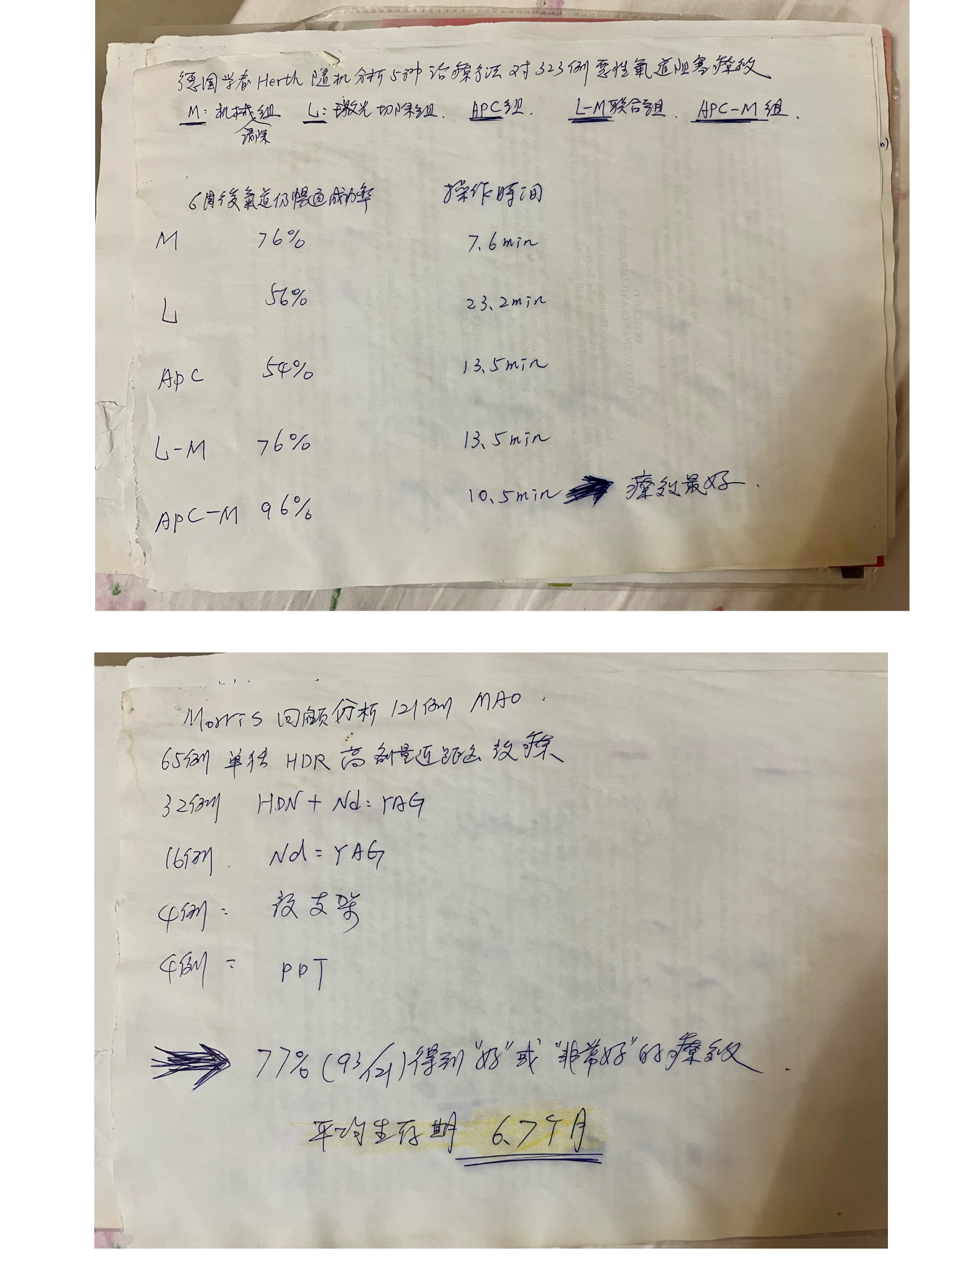 德国学者 Herth 随机分析5种治療方法对323例恶性氣道阻塞療效
M: 机械組 L: 激光切除組. APC組. L-M联合組. APC-M 組.
清除
6周后氣道仍暢通成功率 操作時间
M 76% 7.6min
L 56% 23.2min
APC 54% 13.5min
L-M 76% 13.5min
APC-M 96% 10.5min 療效最好.
Morris 回顧分析 121例 MAO.
65例 单纯 HDR 高剂量近距离放療
32例 HDN + Nd: YAG
16例. Nd: YAG
4例: 放支架
4例: PDT
77% (93/121) 得到"好"或"非常好"的療效.
平均生存期 6.7个月